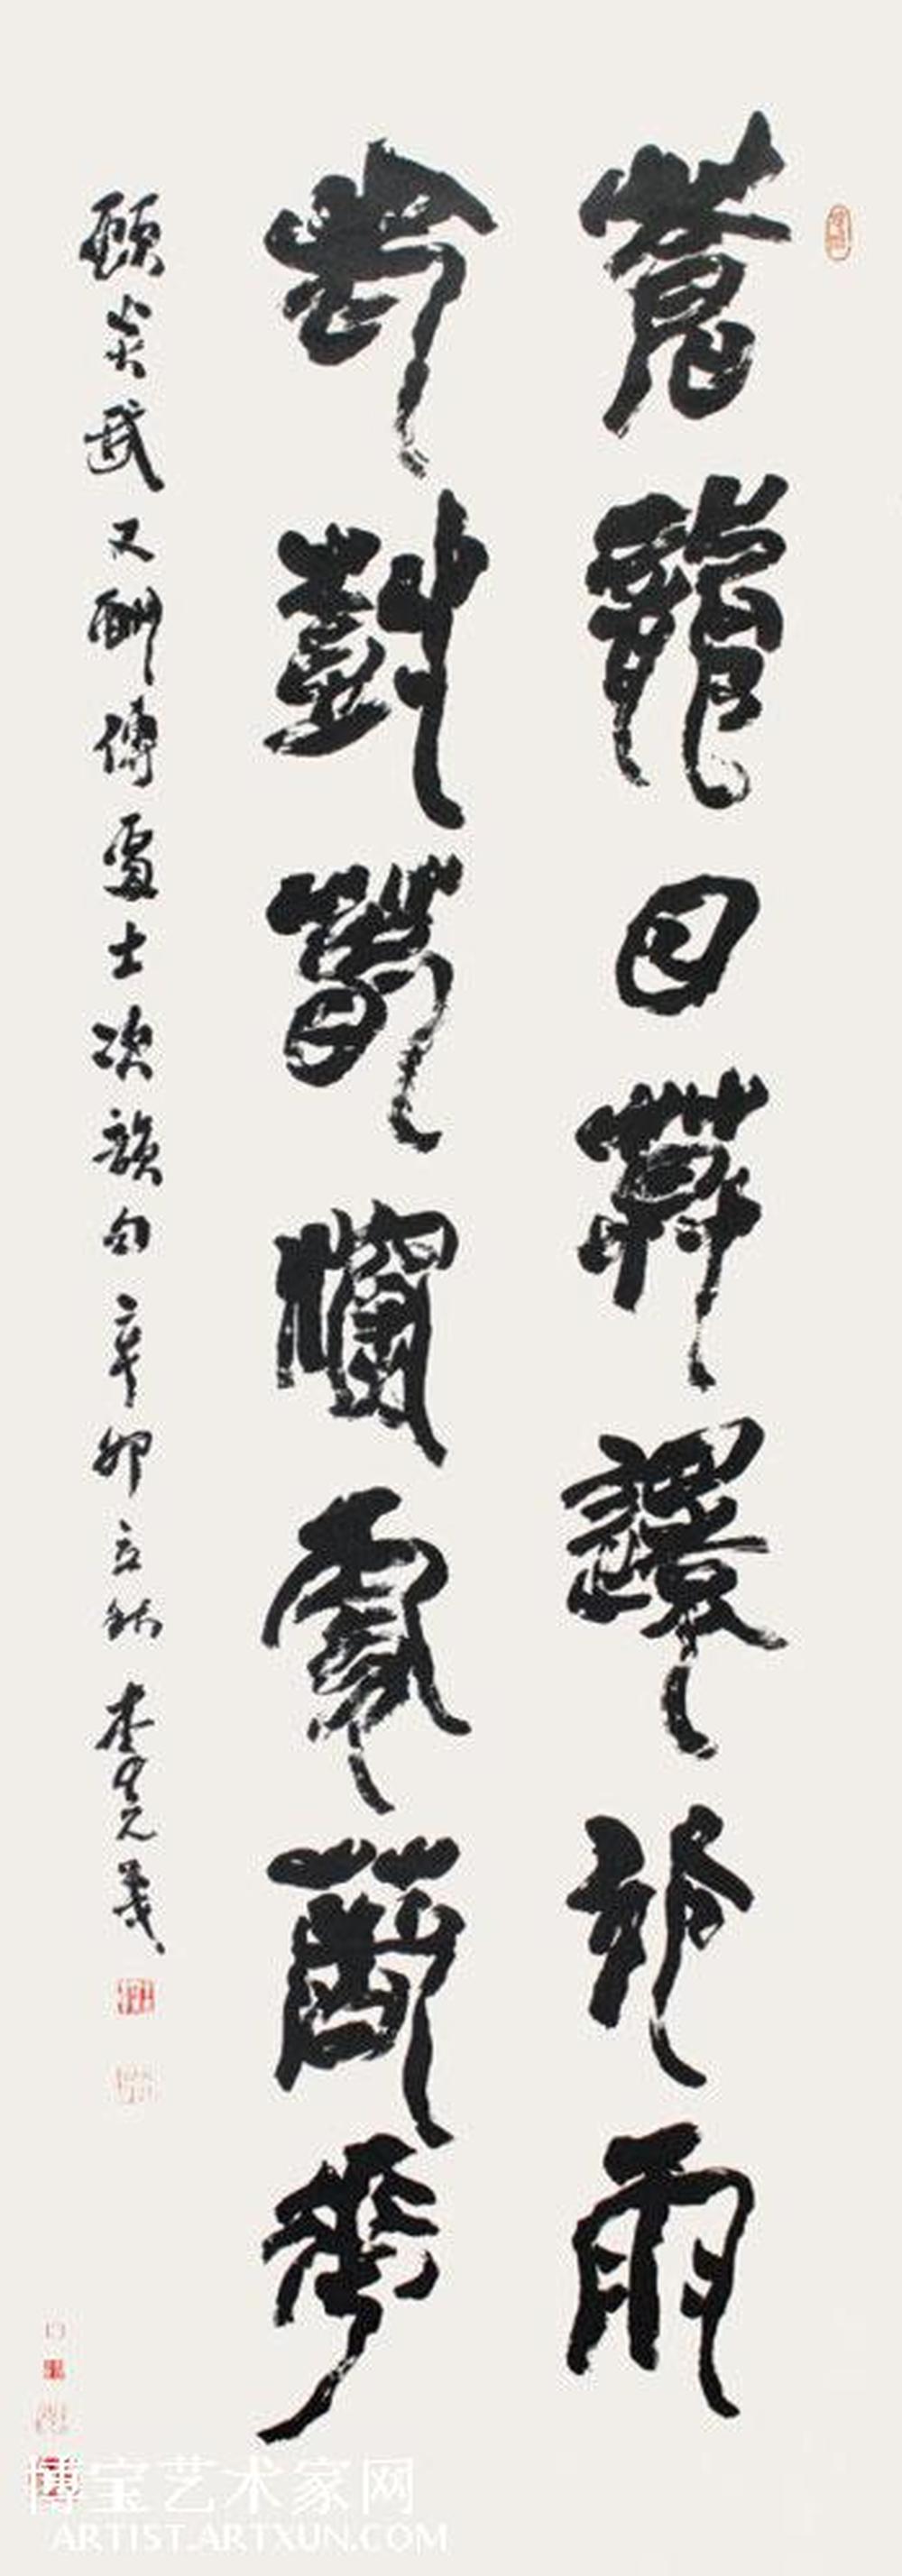 蒼龍日暮還行雨
老樹春深更著華
顧炎武又酬傅處士次韻句辛卯立秋李
博宝艺术家网
ARTIST.ARTXUN.COM